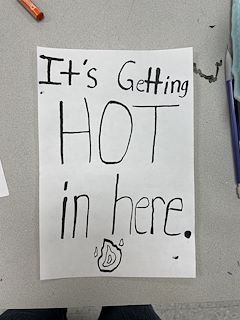 It's Getting
HOT
in here.